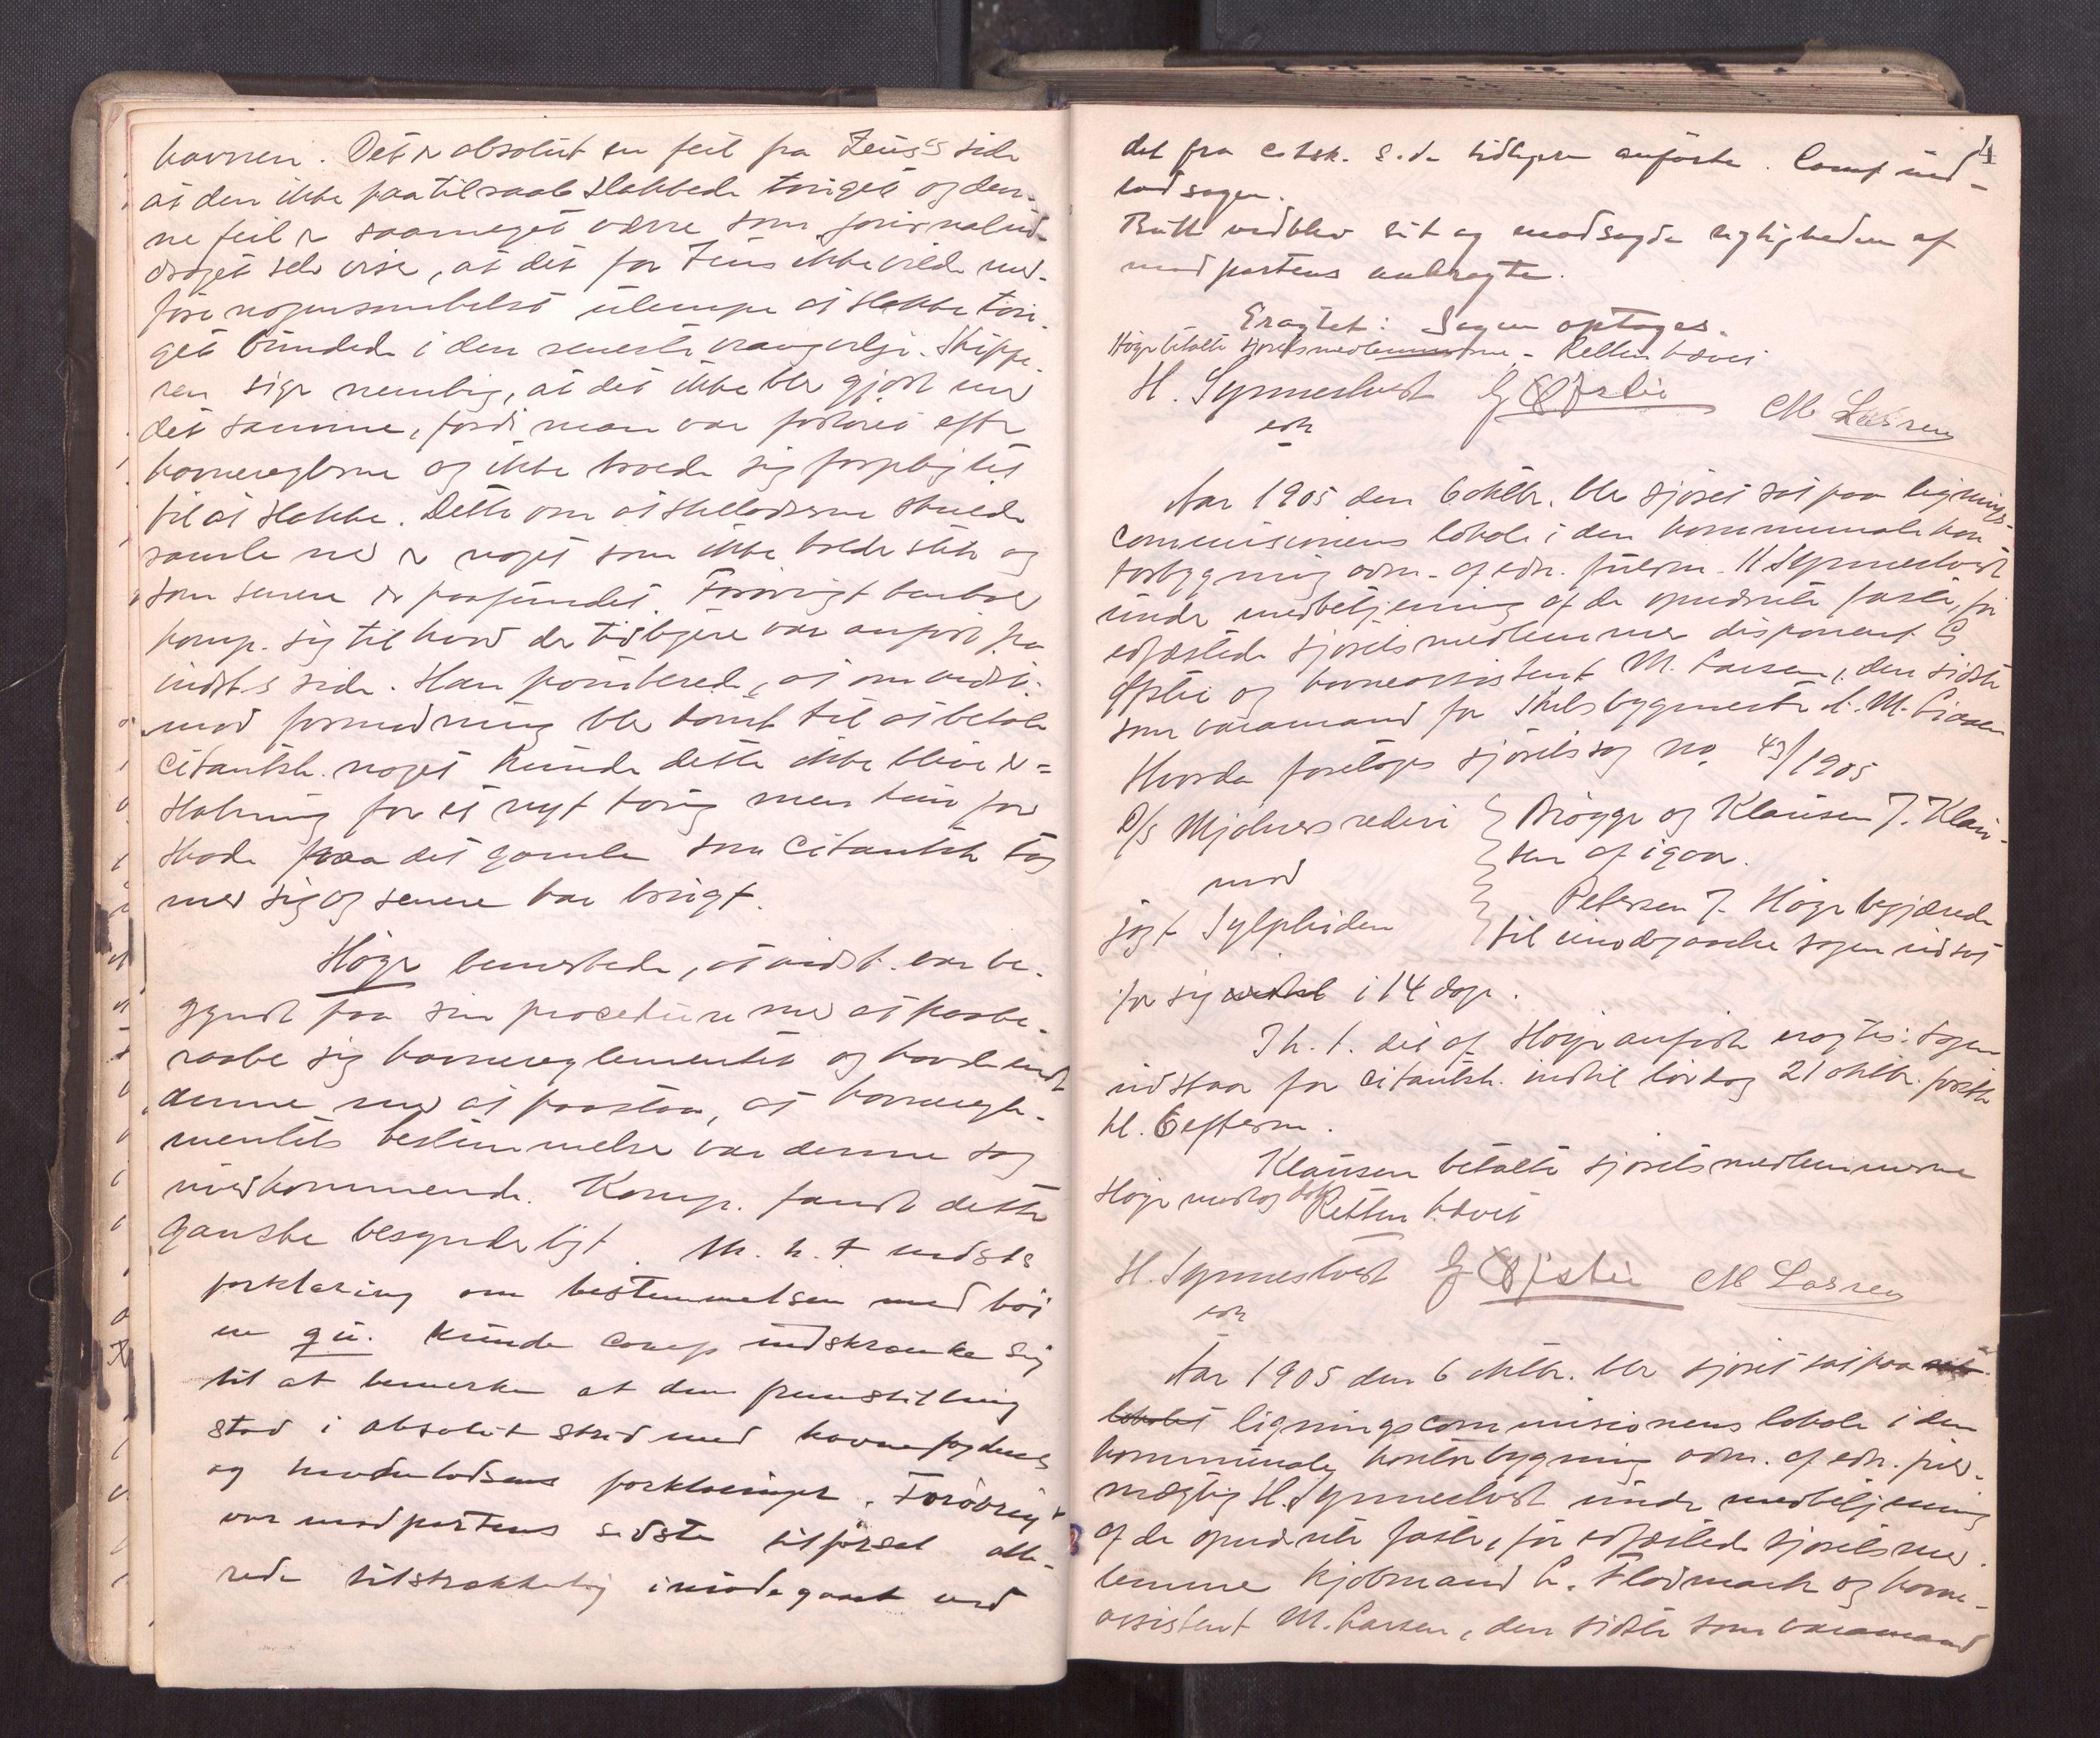 havnen. Det er absolut en feil fra Zeus's side
at den ikke paa tilraab slakkede touget og den-
ne feil er saameget værre som journalud-
draget selv viser, at det for Zeus ikke vilde med-
føre nogensomhelst ulempe at slakke tou-
get bundede i den reneste vrangvilje. Skippe-
ren siger nemlig, at det ikke ble gjort med
det samme, fordi man var fortøiet efter
havnereglerne og ikke troede sig forpligtet
til at slakke. Dette om at skellodserne skulde
samle ned er noget som ikke holder stik og
som senere er paafundet. Forøvrigt henholdt
komp. sig til hvad der tidligere var anført fra
indst.s side. Han paaberobte, at om indst.
mod formodning ble dømt til at betale
citantsk. noget kunde dette ikke blive er-
statning for et nyt toug men kun for
skade paa det gamle som citantsk tog
med sig og senere har brugt.
Høger bemerkede, at indst. var be-
gyndt paa sin procedure med at paabe-
raabe sig havnereglementet og havde endt
denne med at paastaa, at havneregle-
mentets bestemmelser var denne sag
uvedkommende. Komp. fandt dette
ganske besynderligt. M. h. t indsts
forklaring om bestemmelsen med bøi
en qu. kunde comp indskrænke sig
til at bemerke at den fremstilling
stod i absolut strid med havnefogdens
og havnelodsens forklaringer. Forøvrigt
var modpartens sidste tilførsel alle-
rede tilstrækkelig imødegaaet ved
4
det fra citsk. side tidligere anførte. Comp ind-
lod sagen.
Bull vedblev sit og modsagde rigtigheden af
modpartens anbragte.
Eragtet: Sagen optages.
Høger betalte sjøretsmedlemmerne - Retten hævet
H. Synnestvedt G Østlie M Larsen
edr
Aar 1905 den 6 oktbr. ble sjøret sat paa lignings-
commisionens lokale i den kommunale kon
torbygning adm. af edr. fuldm. H Synnestvedt
under medbetjening af de opnævnte faste, før
edfæstede sjøretsmedlemmer disponent G
Østlie og havneassistent M. Larsen, den sidste
som varamand for skibsbygmester M.
Hvorda foretoges sjøretssag no 43/1905
D/S Mjølners rederi } Brøgger og Klausen J. Klau-
sen af igaar.
mod
jagt Sylphiden } Petersen J. Høger begjærede
til imødegaaelse sagen udsat
for sig indtil i 14 dage.
I h. t. det af Høger anførte eragtes: Sagen
udstaar for citantsk. indtil lørdag 21 oktbr. førstk
kl. 6 efterm.
Klausen betalte sjøretsmedlemmerne
Høger modtog dok Retten hævet
H. Synnestvedt G Østlie M Larsen
edr
Aar 1905 den 6 oktbr. ble sjøret sat paa
lokalet ligningscommisionens lokale i den
kommunale kontorbygning adm. af edr. fuld-
mægtig H. Synnestvedt under medbetjening
af de opnævnte faste, før edfæstede sjøretsmed-
lemmer kjøbmand C. Flodmark og havne-
assistent M. Larsen, den sidste som varamand